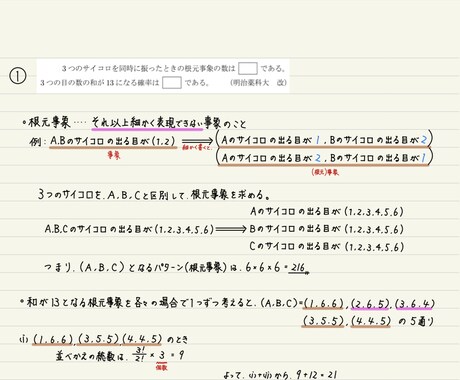 ①
3つのサイコロを同時に振ったときの根元事象の数は□である。
3つの目の数の和が13になる確率は□である。 (明治薬科大 改)
○根元事象‥‥それ以上細かく表現できない事象のこと
例：A,Bのサイコロの出る目が(1,2) 細かく書くと (Aのサイコロの出る目が1, Bのサイコロの出る目が2)
事象 (Aのサイコロの出る目が2, Bのサイコロの出る目が1)
(根元)事象
3つのサイコロを、A,B,Cと区別して、根元事象を求める。
Aのサイコロの出る目が(1,2,3,4,5,6)
A,B,Cのサイコロの出る目が(1,2,3,4,5,6)⟹Bのサイコロの出る目が(1,2,3,4,5,6)
Cのサイコロの出る目が(1,2,3,4,5,6)
つまり、(A,B,C)となるパターン(根元事象)は、6×6×6=216
○和が13となる根元事象を各々の場合で1つずつ考えると、(A,B,C)=(1,6,6),(2,6,5),(3,6,4)
(3,5,5),(4,4,5)の5通り
(i) (1,6,6)(3,5,5)(4,4,5)のとき
並べかえの個数は、3!/2!×3=9
個数
よって、(i)+(ii)から、9+12=21